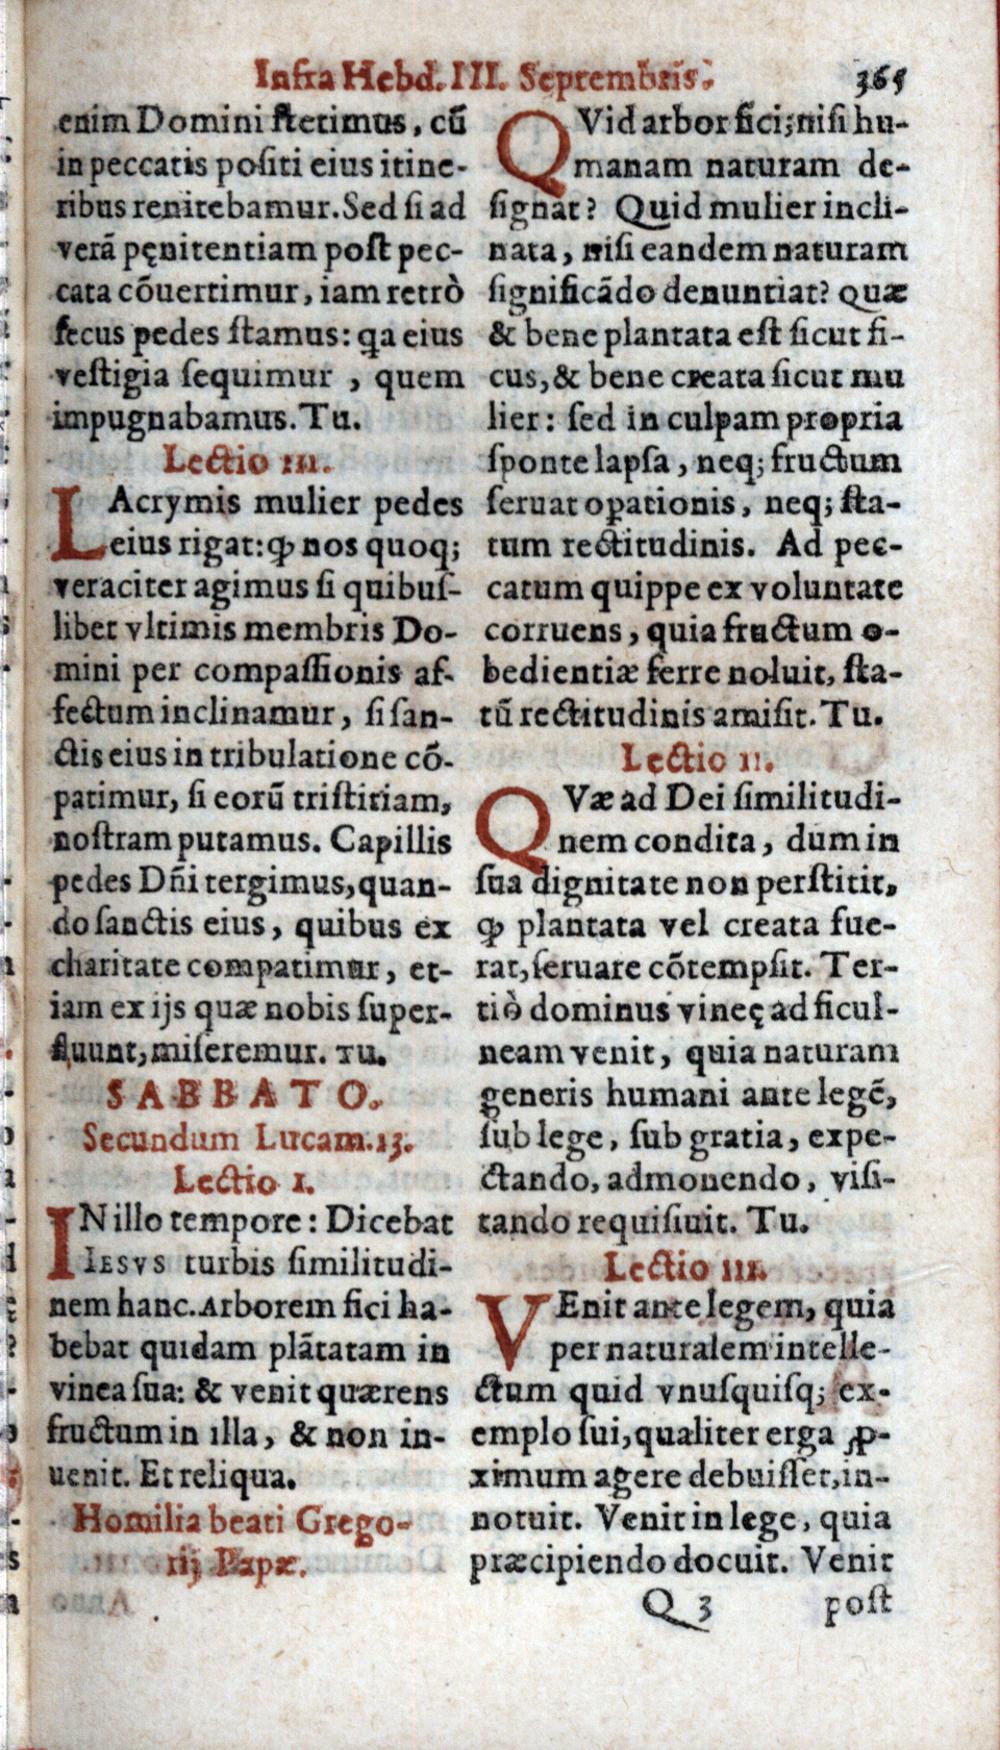 Infra Hebd. III. Septembris. 365
enim Domini ſtetimus, cū
in peccatis poſiti eius itine-
ribus renitebamur. Sed ſi ad
verā pęnitentiam poſt pec-
cata cōuertimur, iam retrò
ſecus pedes ſtamus: qa eius
veſtigia ſequimur , quem
impugnabamus. Tu.
Lectio III.
LAcrymis mulier pedes
eius rigat: ꝙ nos quoq;
veraciter agimus ſi quibuſ-
libet vltimis membris Do-
mini per compaſſionis af-
fectum inclinamur, ſi ſan-
ctis eius in tribulatione cō-
patimur, ſi eorū triſtitiam,
noſtram putamus. Capillis
pedes Dñi tergimus, quan-
do ſanctis eius, quibus ex
charitate compatimur, et-
iam ex ijs quæ nobis ſuper-
fluunt, miſeremur. TU.
SABBATO.
Secundum Lucam. 13.
Lectio I.
IN illo tempore: Dicebat
IESVS turbis ſimilitudi-
nem hanc. Arborem fici ha-
bebat quidam plātatam in
vinea ſua: & venit quærens
fructum in illa, & non in-
uenit. Et reliqua.
Homilia beati Grego-
rij Papæ.
QVid arbor fici; niſi hu-
manam naturam de-
ſignat? Quid mulier incli-
nata, niſi eandem naturam
ſignificādo denuntiat? Quæ
& bene plantata eſt ſicut fi-
cus, & bene creata ſicut mu
lier: ſed in culpam propria
ſponte lapſa, neq; fructum
ſeruat oꝑationis, neq; ſta-
tum rectitudinis. Ad pec-
catum quippe ex voluntate
corruens, quia fructum o-
bedientiæ ferre noluit, ſta-
tū rectitudinis amiſit. Tu.
Lectio II.
QVæ ad Dei ſimilitudi-
nem condita, dum in
ſua dignitate non perſtitit,
ꝙ plantata vel creata fue-
rat, ſeruare cōtempſit. Ter-
tiò dominus vineę ad ficul-
neam venit, quia naturam
generis humani ante legē,
ſub lege, ſub gratia, expe-
ctando, admonendo, viſi-
tando requiſiuit. Tu.
Lectio III.
VEnit ante legem, quia
per naturalem intelle-
ctum quid vnuſquiſq; ex-
emplo ſui, qualiter erga ꝓ-
ximum agere debuiſſet, in-
notuit. Venit in lege, quia
præcipiendo docuit. Venit
Q 3 poſt